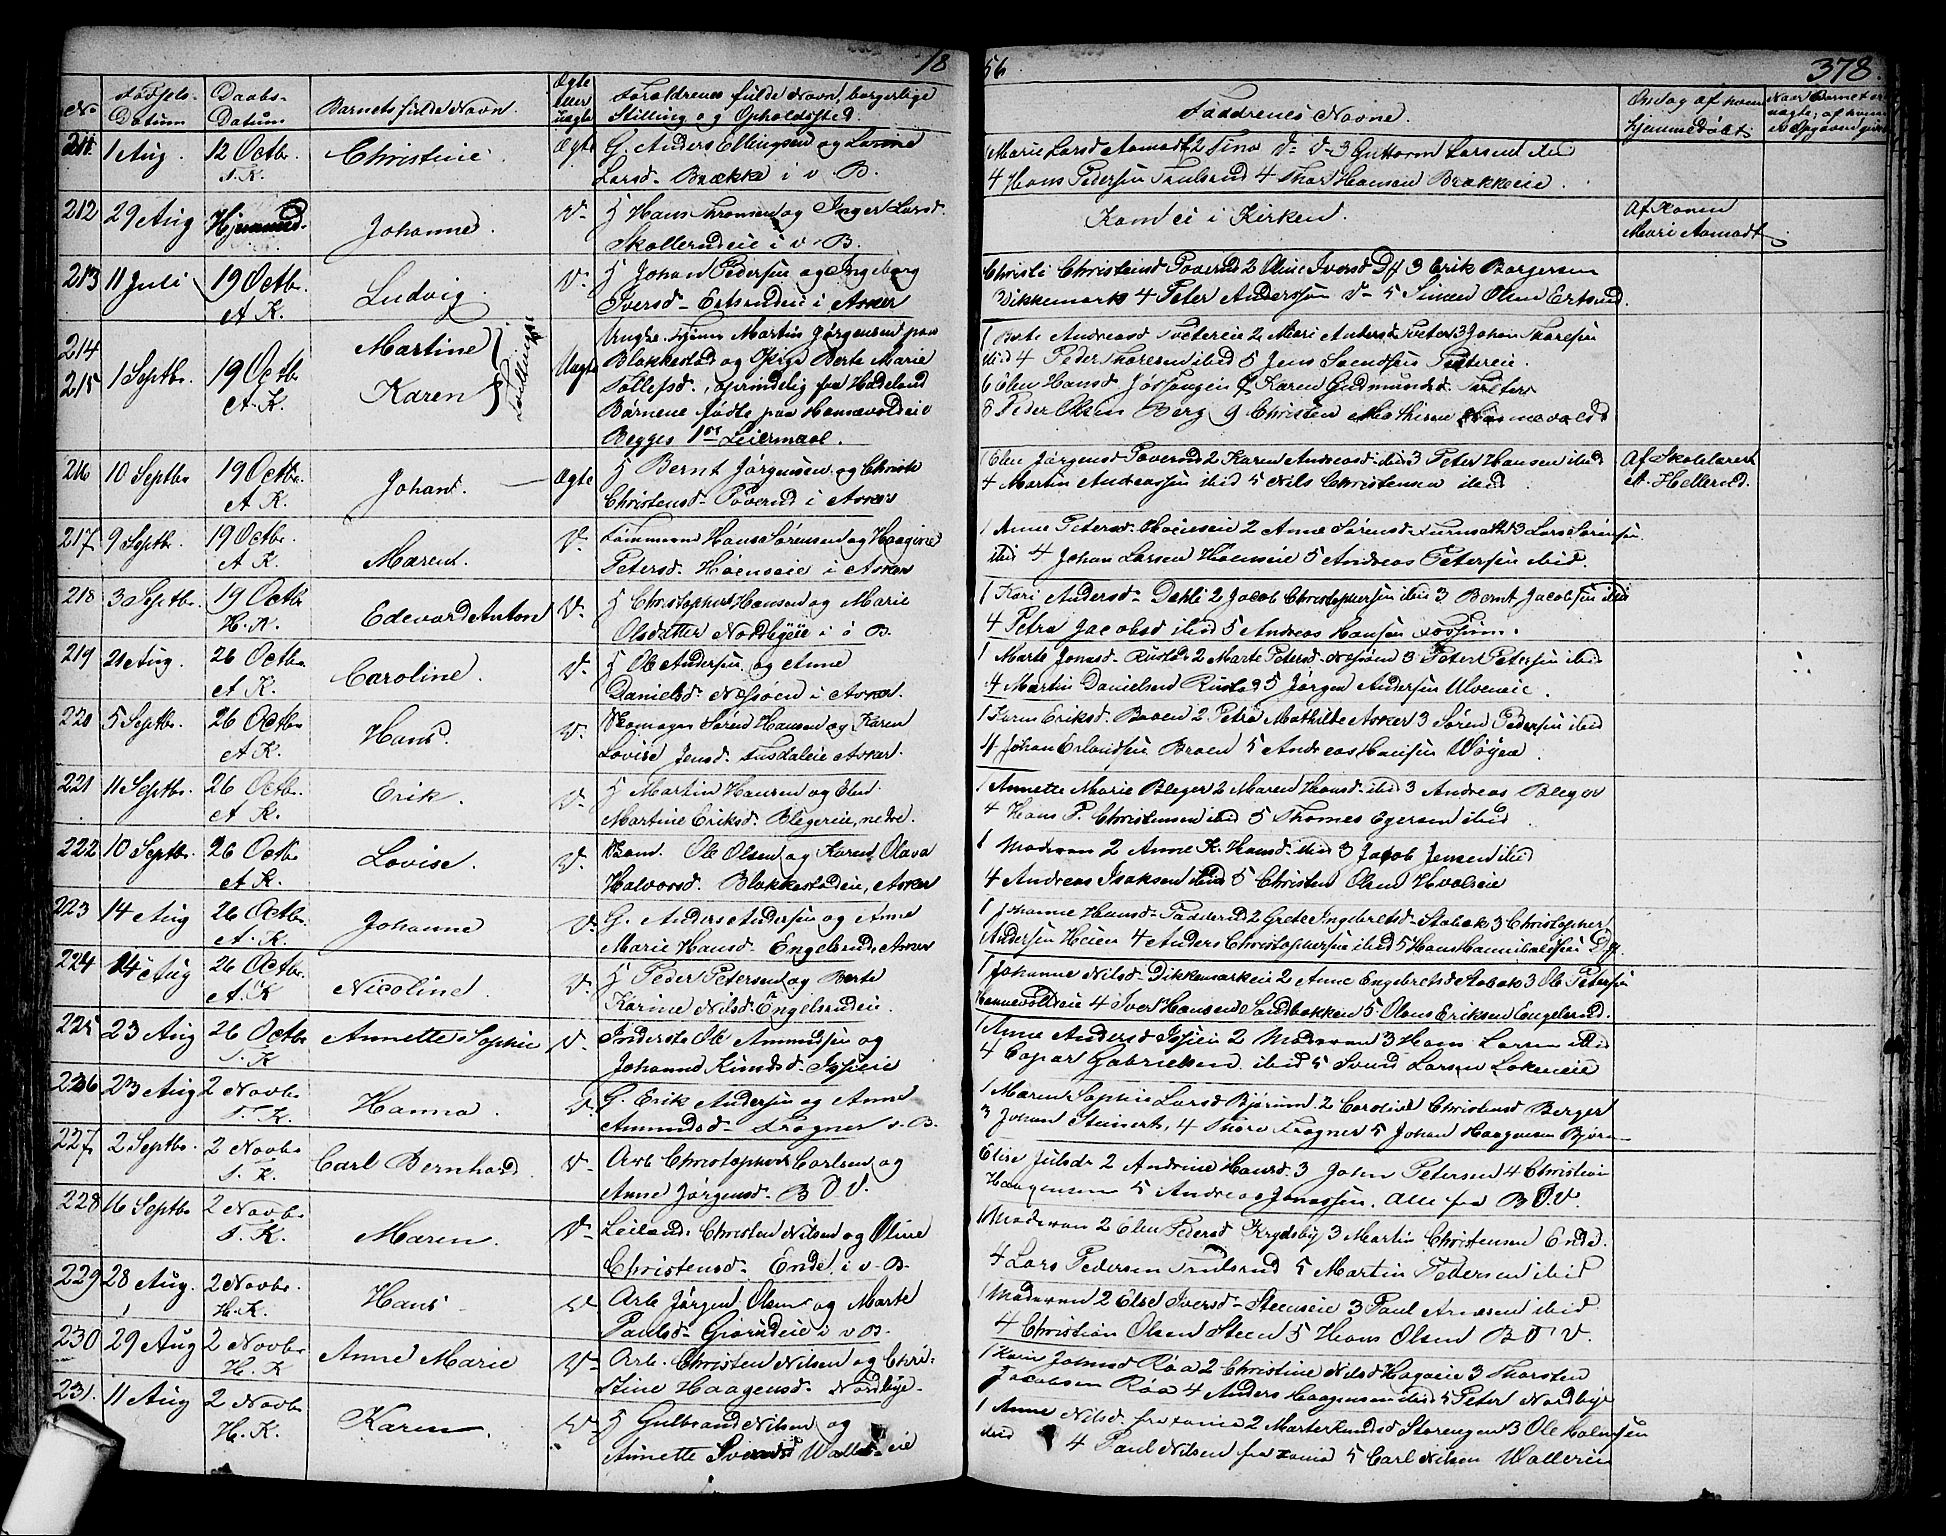 18
56
378.
No
Fødsels-
Datum
Daabs-
Datum
Barnets fulde Navn.
Ægte
eller
uægte
Forældrenes fulde Navn, borgerlige
Stilling og Opholdssted.
Faddrenes Navne.
Om dag af hvem
hjemmedøbt
Naar Barnet er
uægte; af hvem
er Opgaven givet
211
1 Aug.
12 Octbr.
T. K.
Christine
Ægte
G. Anders Ellingsen og Lovine
Larsd. Brække i v. B.
1 Marie Larsd Aamodt 2 Tina D- D- 3 Guttorm Larsen ibid
4 Hans Pedersen Trulsrud 4 Thor Hansen Brækkeie.
212
29 Aug
Hjemmed.
Johanne.
D-
Hans Tronsen og Inger Larsd.
Skollerudeie i v. B.
Kom ei i Kirken.
Af Konen
Mari Aamodt
213
11 Juli
19 Octbr.
A K.
Ludvig.
D-
Johan Pedersen og Ingeborg
Iversd- Ertsrudeie i Asker
Christi Christensd Poverud 2 Oline Iversd Df 3 Erik Borgersen
Dikkemark 4 Peter Anderssøn D- 5 Simen Olsen Ertsrud.
214
215
1 Septbr.
19 Octbr
A. K.
Martine
Karen
Tvillinger
Uægte
Ungke. Tjener Martin Jørgensen paa
Blakkestad og Pige Berte Marie
Tollefsd., oprindelig fra Hadeland
Børnene fødte paa Hønnevoldeie
Begges 1ste Leiermaal.
1 Berte Andreasd Tveterеie 2 Mari Andersd Tveter 3 Johan Thoresen
ibid 4 Peder Thoresen ibid 5 Jens Svendsen Tvetereie
6 Elen Hansd Jøssongen 7 Karen Gudmundsd. Tveter
8 Peder Olsen Berg 9 Christen Mathisen Hønnevold
216
10 Septbr
19 Octbr.
A K.
Johan.
Ægte
Bernt Jørgensen og Christi
Christensd- Poverud i Asker
1 Elen Jørgensd Poverud 2 Karen Andreasd. ibid 3 Peter Hansen ibid
4 Martin Andreassen ibid 5 Nils Christensen ibid
Af Skolelærer
A. Hellerud.
217
9 Septbr.
19 Octbr.
A K.
Maren.
D-
Tømmermd Hans Sørensen og Haagine
Petersd. Høenseie i Asker
1 Anne Petersd. Høenseie 2 Anne Sørensd- 3 Lars Sørensen
ibid 4 Johan Larsen Høenseie 5 Andreas Petersen ibid.
218
3 Septbr.
19 Octbr
H. K.
Edevard Anton
D-
Christopher Hansen og Marie
Olsdatter Nordbyeie i ø B.
1 Kari Andersd- Dæhli 2 Jacob Christophersen ibid 3 Bernt Jacobsen ibid
4 Petra Jacobsd ibid 5 Andreas Hansen Fossum.
219
21 Aug.
26 Octbr.
A K.
Caroline.
D-
Ole Andersen og Anne
Danielsd- Næsøen i Asker.
1 Marte Jonasd- Rustad 2 Marte Petersd- Næsøen 3 Peter Petersen ibid
4 Martin Danielsen Rustad 5 Jørgen Andersen Ulveneie.
220
5 Septbr.
26 Octbr
A K.
Hans.
D-
Skomager Søren Hansen og Karen
Lovise Jensd. Susdaleie Asker.
1 Karen Eriksd. Braaen 2 Petra Mathilde Asker 3 Søren Pedersen ibid
4 Johan Erlandsen Braaen 5 Andreas Hansen Wøyen.
221
11 Septbr.
26 Octbr.
A K.
Erik.
D-
Martin Hansen og Elen
Martine Eriksd. Blegereie, nedre.
1 Annette Marie Bleger 2 Maren Hansd. ibid 3 Andreas Bleger
4 Hans P. Christensen ibid 5 Thomes Egersen ibid.
222
10 Septbr.
26 Octbr
A K.
Lovise.
D-
Ole Olsen og Karen Olava
Halvorsd. Blakkestadeie, Asker
1 Moderen 2 Anne K. Hansd. ibid 3 Jacob Jensen ibid
4 Andreas Isaksen ibid 5 Christen Olsen Hvalseie
223
14 Aug
26 Octbr.
A. K.
Johanne
D-
G. Anders Andersen og Anne
Marie Hansd. Engelsrud, Asker
1 Johanne Hansd- Fadderud 2 Grete Ingebretsd- Stabæk 3 Christopher
Andersen Heien 4 Anders Christophersen ibid 5 Hans Hannibalssen Df
224
14 Aug
26 Octbr.
A. K
Nicoline.
D-
Peder Petersen og Berte
Karine Nilsd. Engelsrudeie.
1 Johanne Nilsd- Dikkemarkeie 2 Anne Engebretsd Stabæk 3 Ole Petersen
Hønnevoldeie 4 Iver Hansen Sandbakken 5 Olaus Eriksen Engelsrud.
225
23 Aug
26 Octbr
T. K
Annette Sophie
D-
Inderste Ole Amundsen og
Johanne Knudsd- Ispeie
1 Anne Andersd Ispeie 2 Moderen 3 Hans Larsen ibid
4 Caspar Gabrielsen ibid 5 Svend Larsen Løkeneie
226
23 Aug
2 Novbr.
T. K.
Hanna.
D-
G. Erik Andersen og Anne
Amundsd- Frogner v. B.
1 Maren Sophie Larsd Bjørum 2 Caroline Christensd Berger
3 Johan Steinert, 4 Thore Frogner 5 Johan Haagensen Bjørum
227
2 Septbr.
2 Novbr
T. K.
Carl Bernhard
D-
Arb Christopher Carlsen og
Anne Jørgensd. B V V.
Elise Julsdr 2 Andrine Hansd. 3 John Petersen 4 Christian
Haagensen 5 Andreas Jonassen. Alle fra B V V.
228
16 Septbr
2 Novbr
T. K.
Maren.
D-
Leilænd. Christen Nilsen og Oline
Christensd- Ende, i v. B.
1 Moderen 2 Elen Pedersd Krydsby 3 Martin Christensen Ende.
4 Lars Pedersen Trulsrud 5 Martin Pedersen ibid
229
28 Aug.
2 Novbr.
H. K.
Hans
D-
Arb Jørgen Olsen og Marte
Paulsd- Gjørudeie i v B.
1 Moderen 2 Else Iversd- Steenseie 3 Paul Arnesen ibid
4 Christian Olsen Steen 5 Hans Olsen B V V.
230
29 Aug
2 Novbr
H. K
Anne Marie
D-
Arb. Christen Nilsen og Chri-
stine Haagensd. Nordbye-
1 Karen Johnsd Røa 2 Christine Nilsd Hagaeie 3 Thorsten
Jacobsen Røa 4 Anders Haagensen ibid 5 Peter Nordbye
231.
11 Aug
2 Novbr
H. K.
Karen.
D-
Gulbrand Nilsen og
Annette Svendsd Wallereie
1 Anne Nilsd. fra Tanum 2 Marte Knudsd Storengen 3 Ole Holmsen
ibid 4 Paul Nilsen fra Tanum 5 Carl Nilsen Wallereie